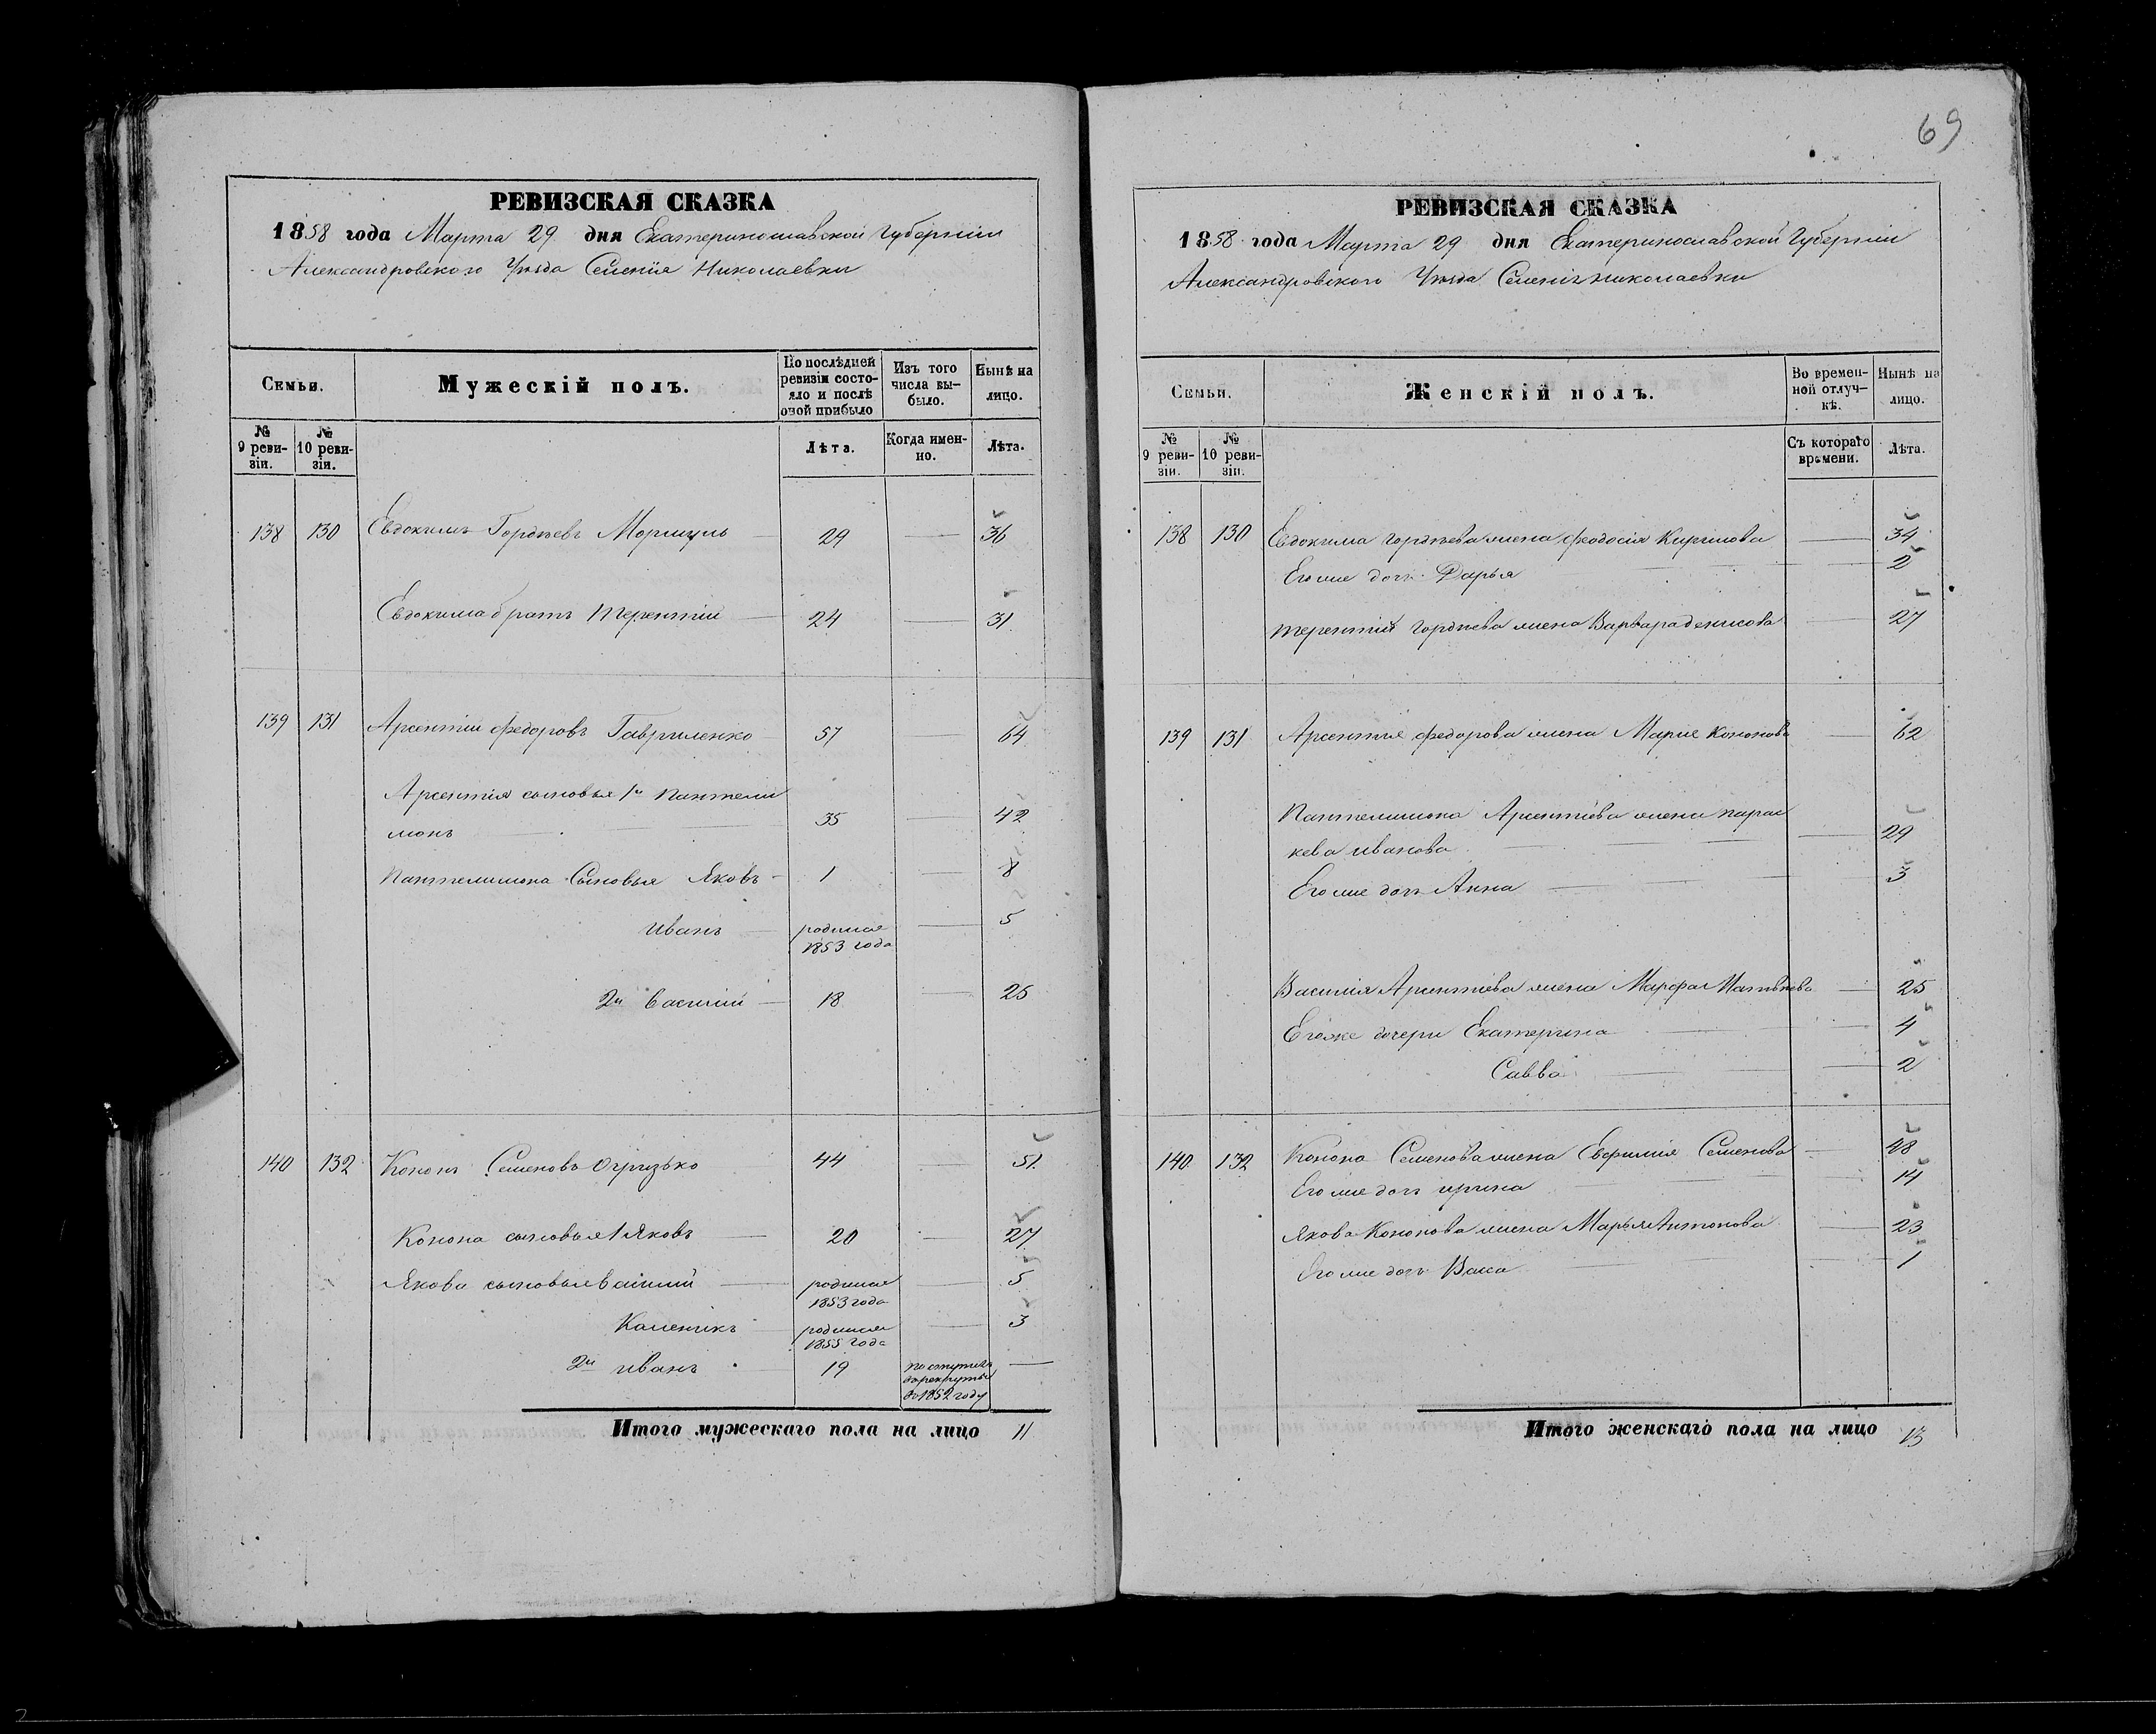 69
РЕВИЗСКАЯ СКАЗКА
1858 года Марта 29 дня Екатеринославской Губерніи
Александровского Уѣзда Селенія Николаевки
Семьи.
Мужескій полъ.
По послѣдней ревизіи состояло и послѣ оной прибыло
Изъ того числа выбыло.
Нынѣ на лицо.
№ 9 ревизіи.
№ 10 ревизіи.
Лѣта.
Когда именно.
Лѣта.
138 130 Евдокимъ Гордѣевъ Моршуль 29 36
Евдокима братъ Терентій 24 31
139 131 Арсентій Федоровъ Гавриленко 57 64
Арсентія сыновья 1й Пантели
монъ 35 42
Пантелимона Сыновья Яковъ 1 8
Иванъ родился 5
1853 года
2й Василій 18 25
140 132 Кононъ Семеновъ Огризько 44 51
Конона сыновья 1 Яковъ 20 27
Якова сыновья Василий родился 5
1853 года
Каленикъ родился 3
1855 года
2й Иванъ 19 поступилъ
в рекруты
в 1852 году
Итого мужескаго пола на лицо 11
РЕВИЗСКАЯ СКАЗКА
1858 года Марта 29 дня Екатеринославской Губерніи
Александровского Уѣзда Селенія Николаевки
Семьи.
Женскій полъ.
Во временной отлучкѣ.
Нынѣ на лицо.
№ 9 ревизіи.
№ 10 ревизіи.
Съ котораго времени.
Лѣта.
138 130 Евдокима Гордѣева жена Феодосія Кирилова 34
Его же дочь Дарья 2
Терентія Гордѣева жена Варвара Денисова 27
139 131 Арсентія Федорова жена Марія Кононова 62
Пантелимона Арсентіева жена Парас
кева Иванова 29
Его же дочь Анна 3
Василія Арсентіева жена Марфа Матвѣева 25
Его же дочери Екатерина 4
Савва 2
140 132 Конона Семенова жена Евфимія Семенова 48
Его же дочь Ирина 14
Якова Кононова жена Марья Антонова 23
Его же дочь Васа 1
Итого женскаго пола на лицо 13